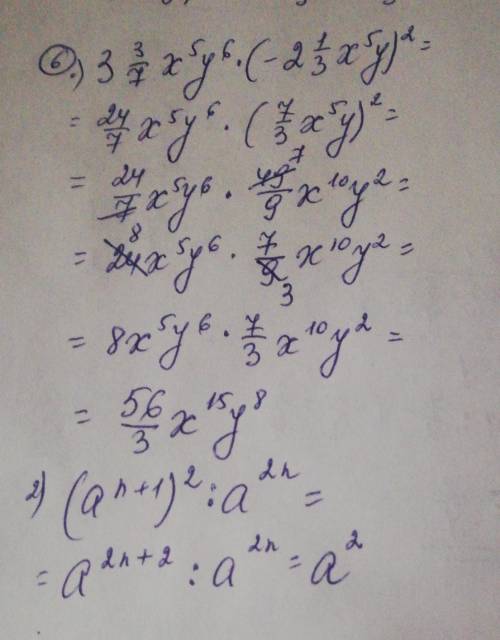 6.) 3 3/7 x⁵y⁶ · (-2 1/3 x⁵y)² =
= 24/7 x⁵y⁶ · (7/3 x⁵y)² =
= 24/7 x⁵y⁶ · 49 7/9 x¹⁰y² =
= 24 8 x⁵y⁶ · 7/9 3 x¹⁰y² =
= 8x⁵y⁶ · 7/3 x¹⁰y² =
= 56/3 x¹⁵y⁸
2) (aⁿ⁺¹)² : a²ⁿ =
= a²ⁿ⁺² : a²ⁿ = a²